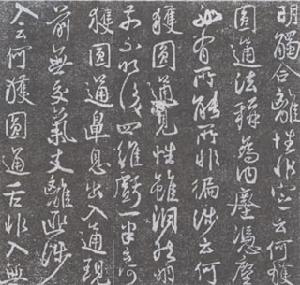 明觸合離性非定云何獲
圓通法稱為內塵憑塵
必有所能所非徧涉云何
獲圓通見性雖洞然明
前不明後四維虧一半云何
獲圓通鼻息出入通現
前無交氣支離匪涉
入云何獲圓通舌非入無